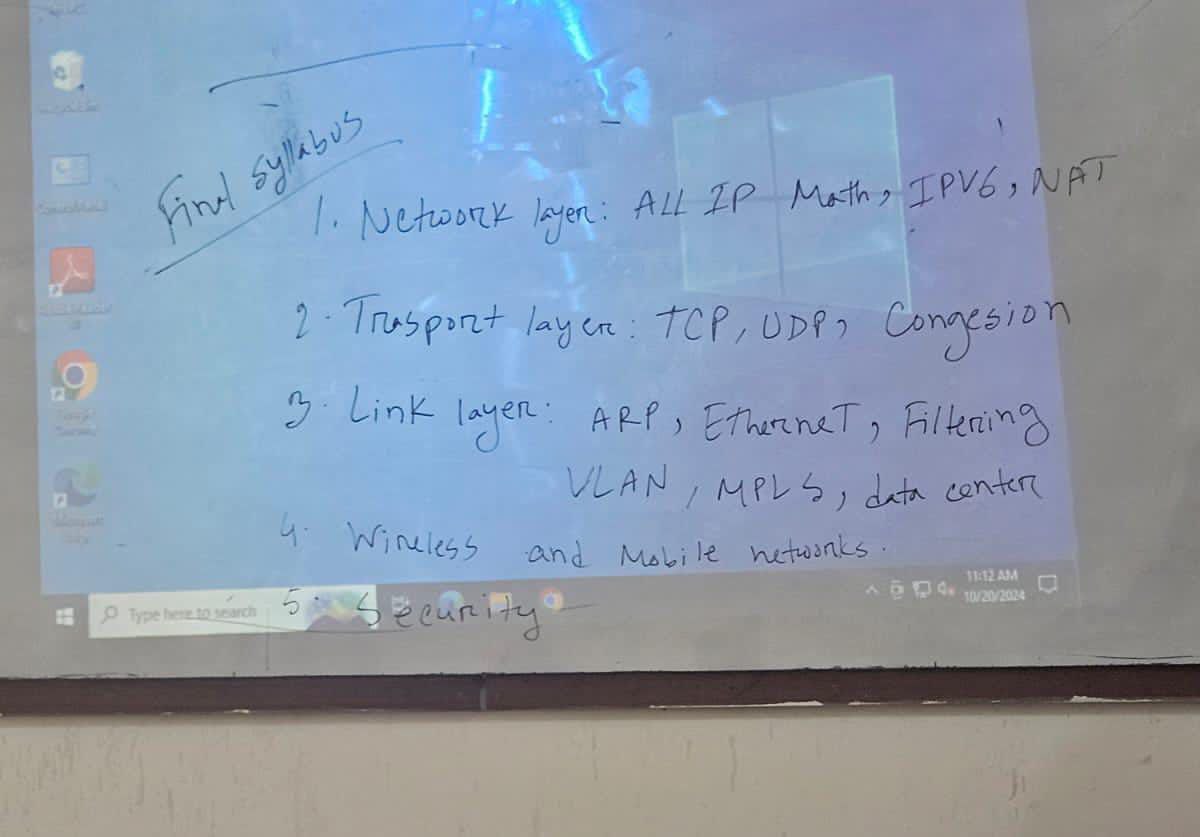 Final syllabus
1. Network layer: ALL IP Math, IPV6, NAT
2. Trasport layer: TCP, UDP, Congesion
3. Link layer: ARP, EtherneT, Filtering
VLAN, MPLS, data center
4. Wireless and Mobile networks.
5. Security
Type here to search
11:12 AM
10/20/2024